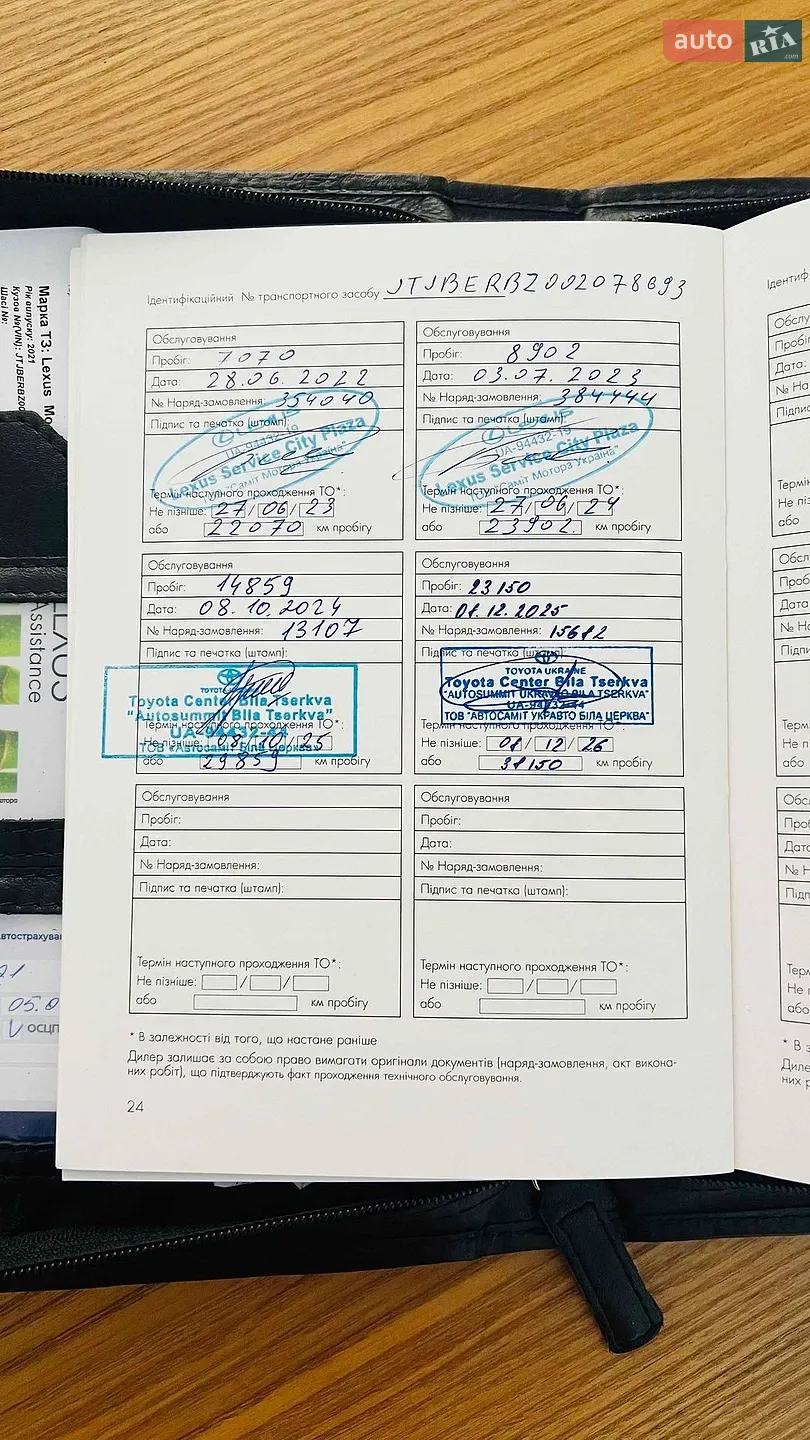 auto RIA .com
Марка ТЗ: Lexus
Рік випуску: 2021
Кузов №(VIN): JTJBERBZ00
Шасі №:
Assistance
Ідентифікаційний № транспортного засобу JTJBERBZ002078693
Обслуговування
Пробіг: 7070
Дата: 28.06.2022
№ Наряд-замовлення: 354040
Підпис та печатка (штамп):
LEXUS
UA-94432-19
Lexus Service City Plaza
"Саміт Моторз Україна"
Термін наступного проходження ТО*:
Не пізніше: 27/06/23
або 22070 км пробігу
Обслуговування
Пробіг: 8902
Дата: 03.07.2023
№ Наряд-замовлення: 384444
Підпис та печатка (штамп):
LEXUS
UA-94432-19
Lexus Service City Plaza
"Саміт Моторз Україна"
Термін наступного проходження ТО*:
Не пізніше: 27/06/24
або 23902 км пробігу
Обслуговування
Пробіг: 14859
Дата: 08.10.2024
№ Наряд-замовлення: 13107
Підпис та печатка (штамп):
TOYOTA
Toyota Center Bila Tserkva
"Autosummit Bila Tserkva"
UA-94432-44
ТОВ «Автосаміт Біла Церква»
Термін наступного проходження ТО*:
Не пізніше: 08/10/25
або 29859 км пробігу
Обслуговування
Пробіг: 23150
Дата: 01.12.2025
№ Наряд-замовлення: 15612
Підпис та печатка (штамп):
TOYOTA UKRAINE
Toyota Center Bila Tserkva
"AUTOSUMMIT UKRAVTO BILA TSERKVA"
UA-94432-44
ТОВ "АВТОСАМІТ УКРАВТО БІЛА ЦЕРКВА"
Термін наступного проходження ТО*:
Не пізніше: 01/12/26
або 38150 км пробігу
Обслуговування
Пробіг:
Дата:
№ Наряд-замовлення:
Підпис та печатка (штамп):
Термін наступного проходження ТО*:
Не пізніше: / /
або км пробігу
Обслуговування
Пробіг:
Дата:
№ Наряд-замовлення:
Підпис та печатка (штамп):
Термін наступного проходження ТО*:
Не пізніше: / /
або км пробігу
* В залежності від того, що настане раніше
Дилер залишає за собою право вимагати оригінали документів (наряд-замовлення, акт викона-
них робіт), що підтверджують факт проходження технічного обслуговування.
24